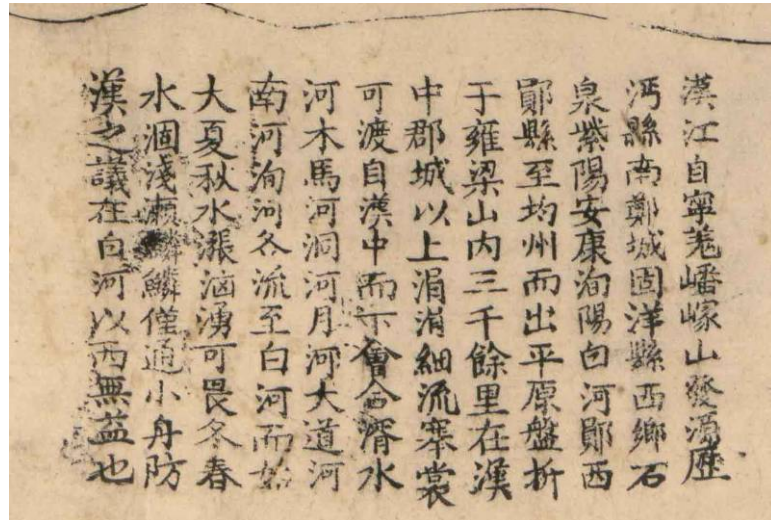 漢江自寧羗嶓嶛山發源歷
沔縣南鄭城固洋縣西鄉石
泉紫陽安康洵陽白河鄖西
鄖縣至均州而出平原盤折
于雍梁山内三千餘里在漢
中郡城以上涓涓細流褰裳
可渡自漢中而下會合湑水
河木馬河洞河月河大道河
南河洵河各流至白河而始
大夏秋水漲洶湧可畏冬春
水涸淺瀬鱗鱗僅通小舟防
漢之議在白河以西無益也